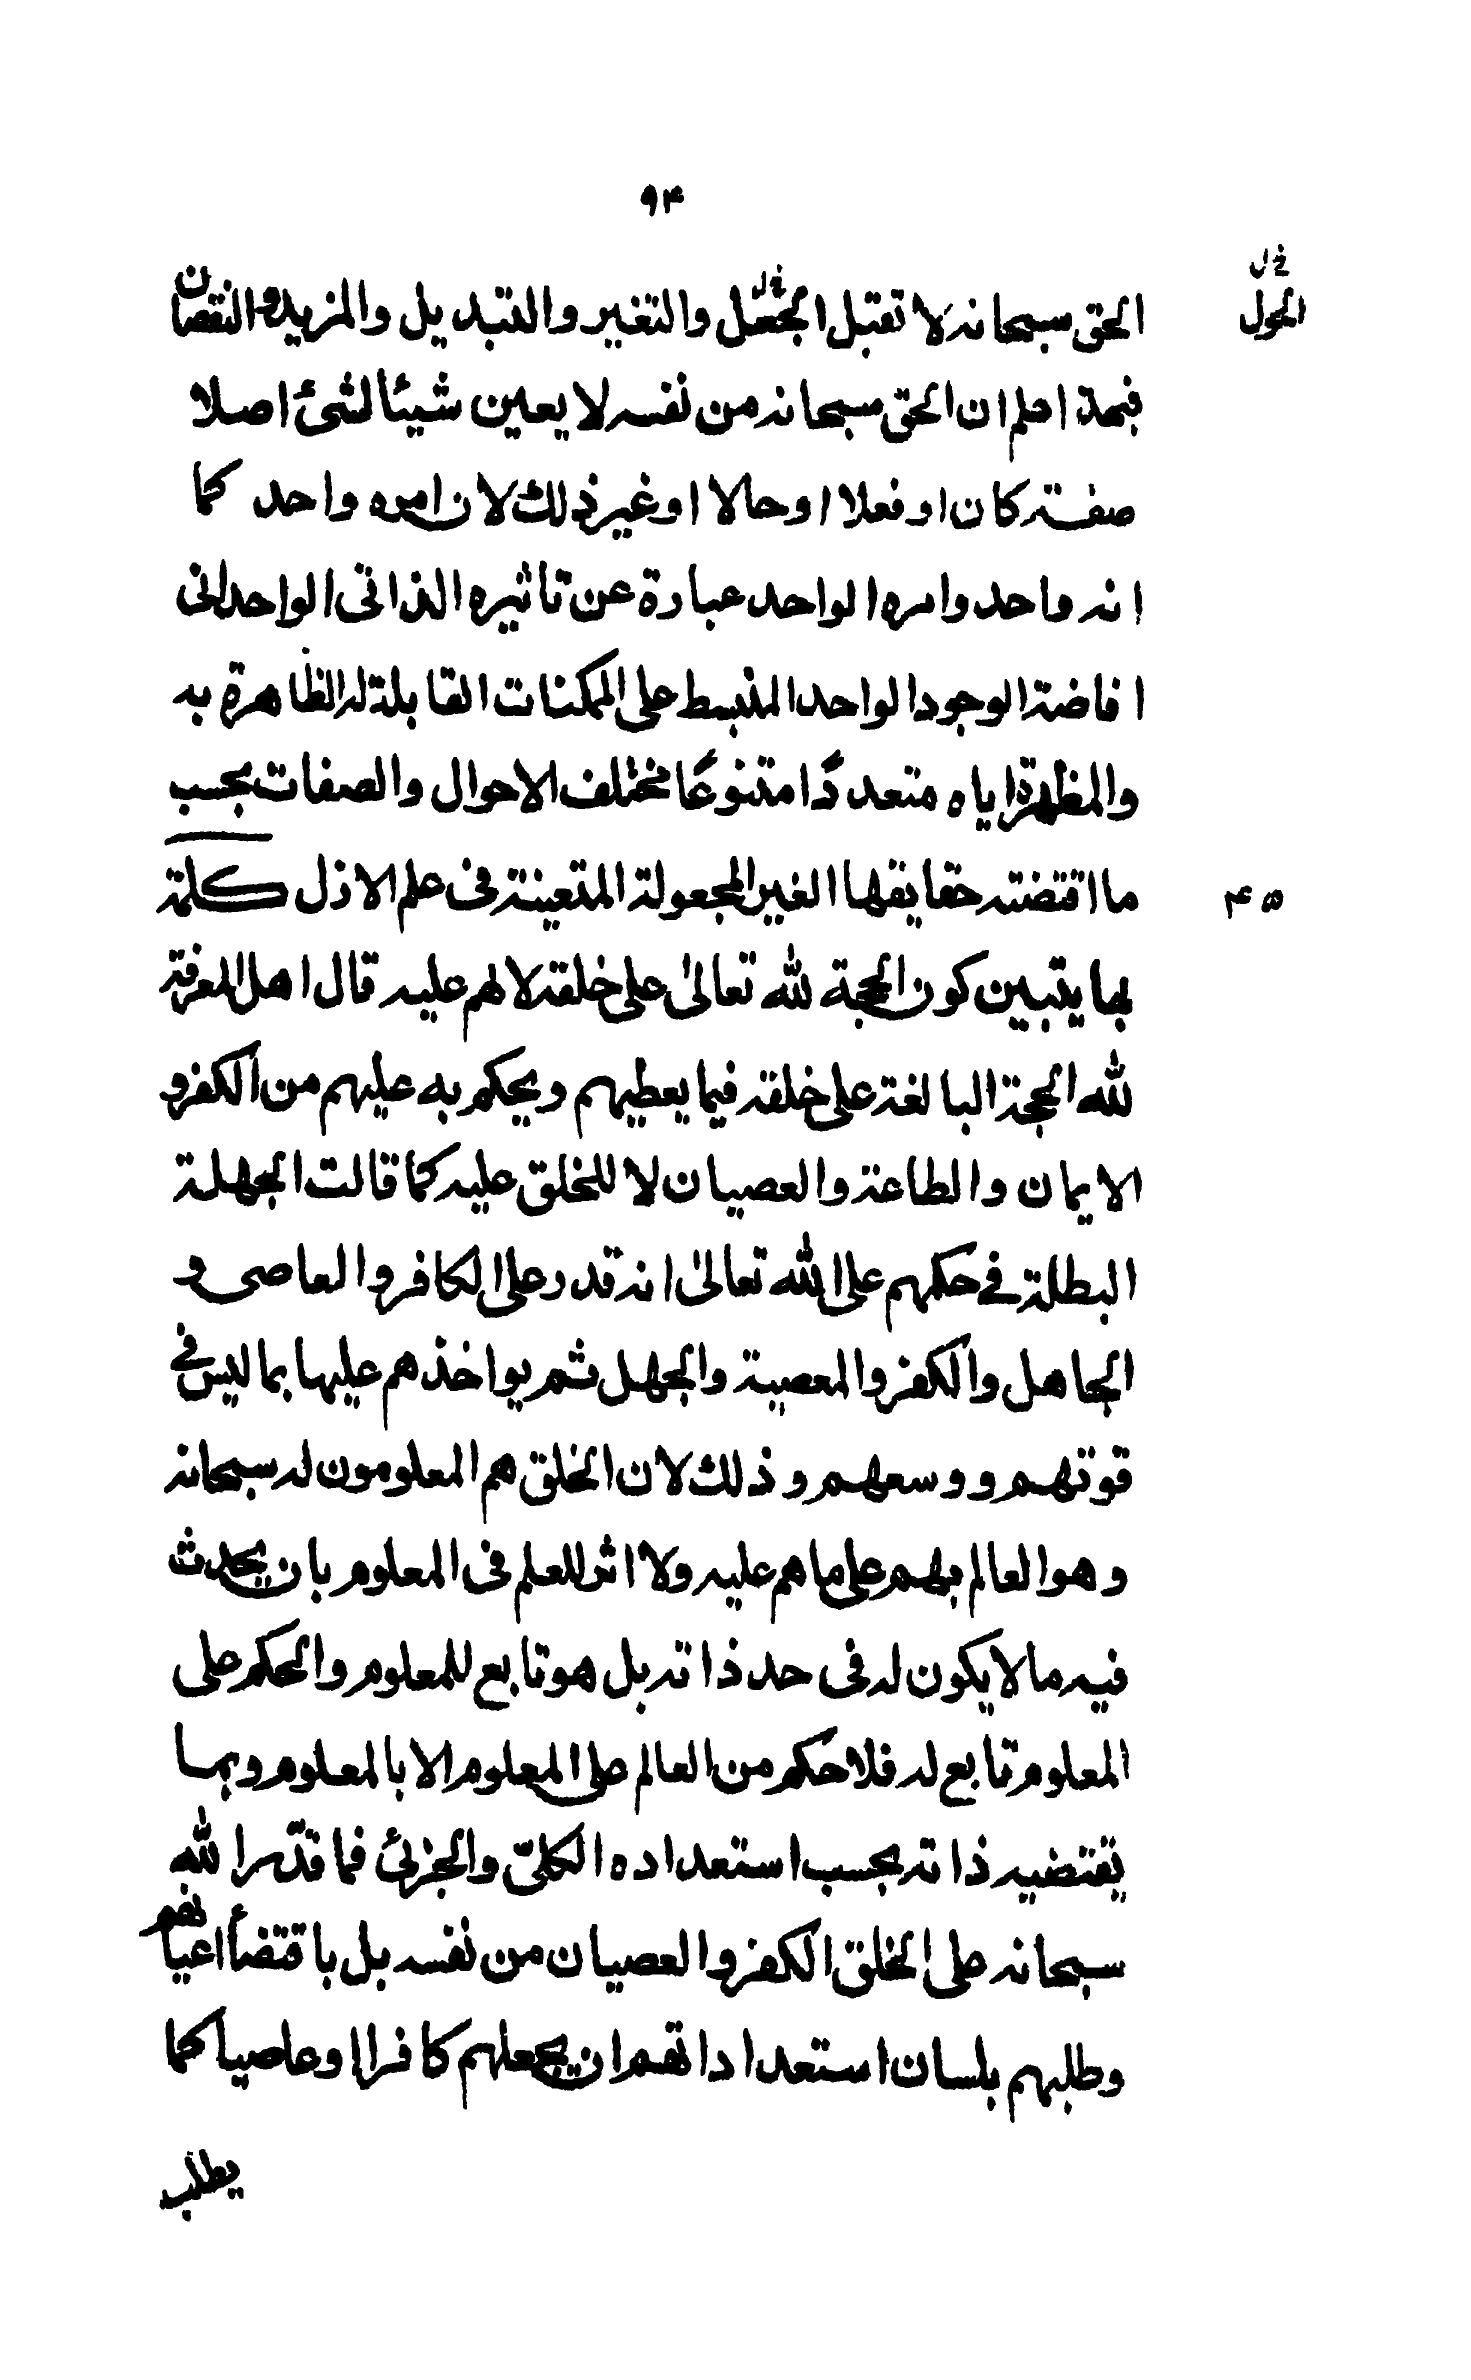 ٩۴
خ ل
الجول
الحق سبحانه لا تقبل الجعل والتغير والتبديل والمزيد والنقصان
فبمة اعلم ان الحق سبحانه من نفسه لا يعين شيئا لشئ اصلا
صفة كان او فعلا او حالا او غير ذلك لان امره واحد كما
انه واحد وامره الواحد عبارة عن تاثيره الذاتى الواحدانى
افاضة الوجود الواحد المنبسط على الممكنات القابلة له الظاهرة به
والمظهرة اياه متعددًا متنوعًا مختلف الاحوال والصفات بحسب
ما اقتضته حقايقها الغير المجعولة المتعينة فى علم الازل كلمة
۴۵
بها يتبين كون الحجة لله تعالىٰ على خلقه لا لهم عليه قال اهل المعرفة
لله الحجة البالغة على خلقه فيما يعطيهم ويحكم به عليهم من الكفر و
الايمان والطاعة والعصيان لا للخلق عليه كما قالت الجهلة
البطلة في حكمهم على الله تعالىٰ انه قدر على الكافر والعاصى و
الجاهل والكفر والمعصية والجهل ثم يواخذهم عليها بما ليس في
قوتهم و وسعهم و ذلك لان الخلق هم المعلومون له سبحانه
وهو العالم بهم على ما هم عليه ولا اثر للعلم فى المعلوم بان يحدث
فيه ما لا يكون له فى حد ذاته بل هو تابع للمعلوم والحكم على
المعلوم تابع له فلا حكم من العالم على المعلوم الا بالمعلوم وبما
يقتضيه ذاته بحسب استعداده الكلىّ والجزئ فما قدّر الله
سبحانه على الخلق الكفر والعصيان من نفسه بل باقتضأ اعيانهم
وطلبهم بلسان استعداداتهم ان يجعلهم كافرا او عاصيا كما
يطلب